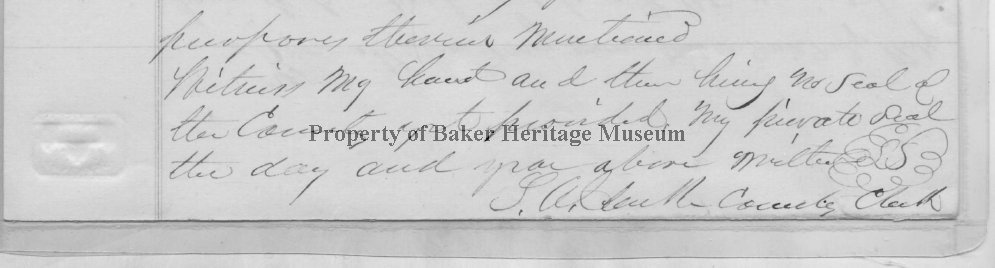 purposes therein mentioned
Witness my hand and ther being no seal of
the County yet provided my private seal
Property of Baker Heritage Museum
the day and year above written LS
S. A. County Clerk